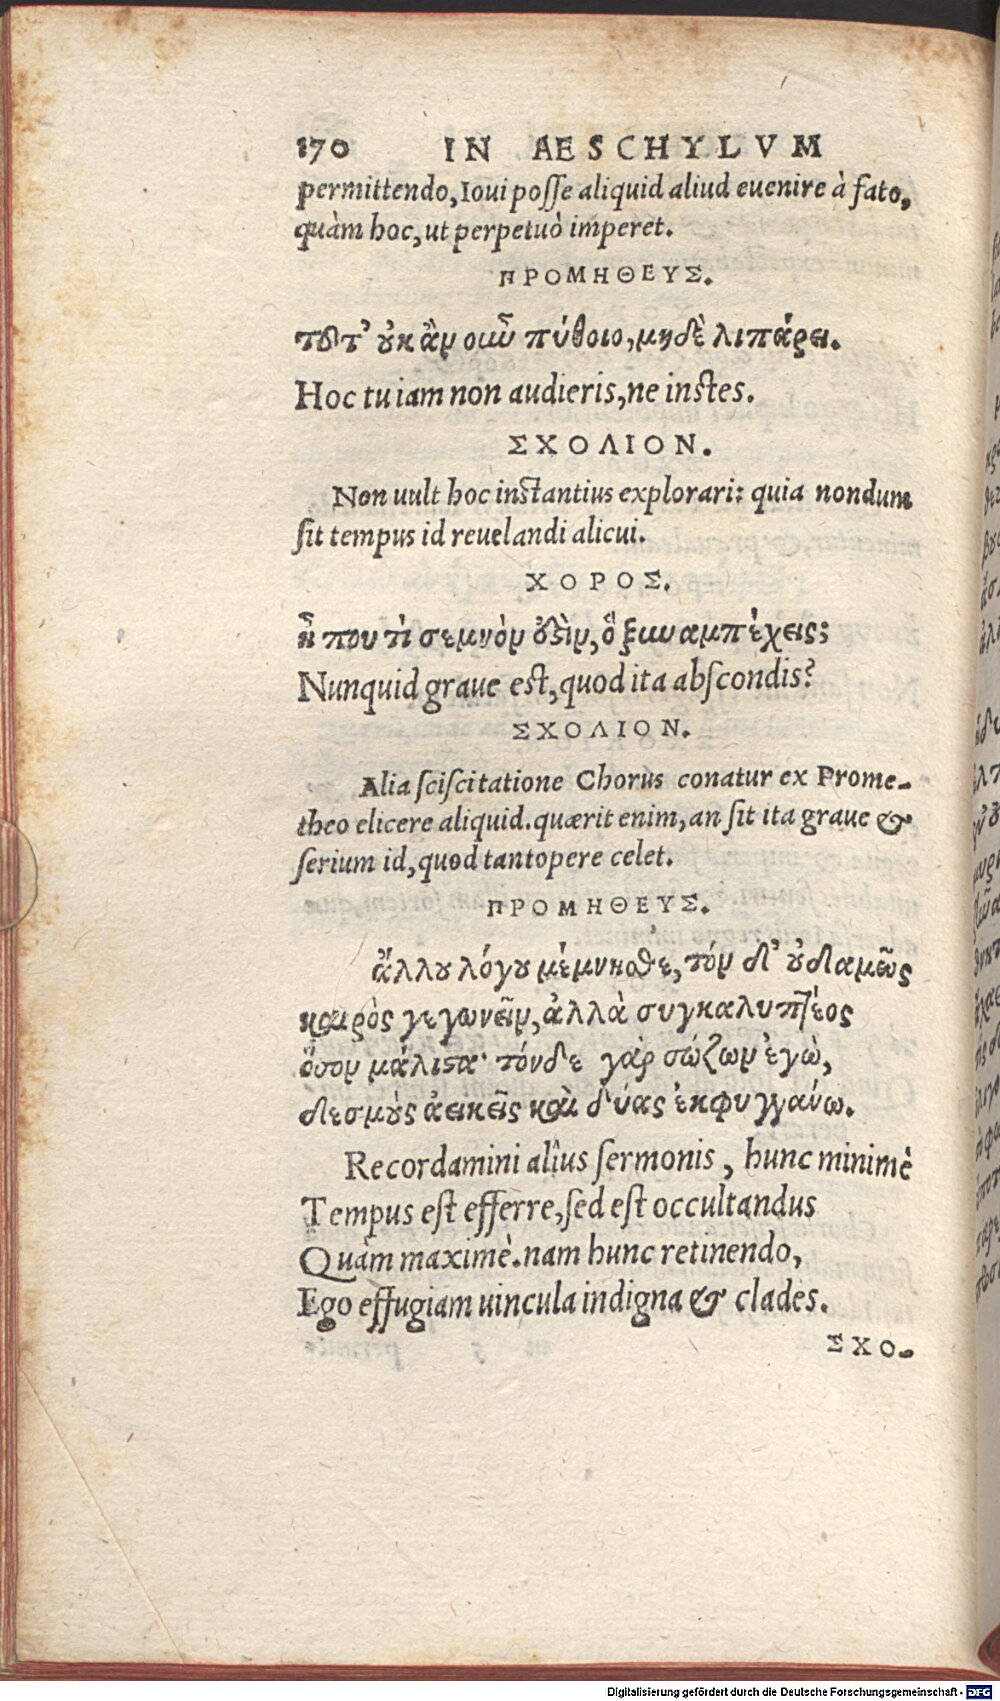 170 IN AESCHYLVM
permittendo, Ioui posse aliquid aliud euenire à fato,
quàm hoc, ut perpetuò imperet.
ΠΡΟΜΗΘΕΥΣ.
τοῦτ᾽ οὐκ ἂν οὖν πύθοιο, μηδὲ λιπάρει.
Hoc tu iam non audieris, ne instes.
ΣΧΟΛΙΟΝ.
Non uult hoc instantius explorari: quia nondum
sit tempus id reuelandi alicui.
ΧΟΡΟΣ.
ἦ που τὶ σεμνόν ὅστιν, ὃ ξυναμπέχεις;
Nunquid graue est, quod ita abscondis?
ΣΧΟΛΙΟΝ.
Alia sciscitatione Chorus conatur ex Prome-
theo elicere aliquid. quærit enim, an sit ita graue &
serium id, quod tantopere celet.
ΠΡΟΜΗΘΕΥΣ.
ἄλλου λόγου μέμνησθε, τόν δ᾽ οὐδαμῶς
καιρὸς γεγωνεῖν, ἀλλὰ συγκαλυπτέος
ὅσον μάλιστα· τόνδε γὰρ σώζων ἐγὼ,
δεσμοὺς ἀεικεῖς καὶ δύας ἐκφυγγάνω.
Recordamini alius sermonis, hunc minimè
Tempus est efferre, sed est occultandus
Quàm maximè. nam hunc retinendo,
Ego effugiam uincula indigna & clades.
ΣΧΟ-
Digitalisierung gefördert durch die Deutsche Forschungsgemeinschaft - DFG